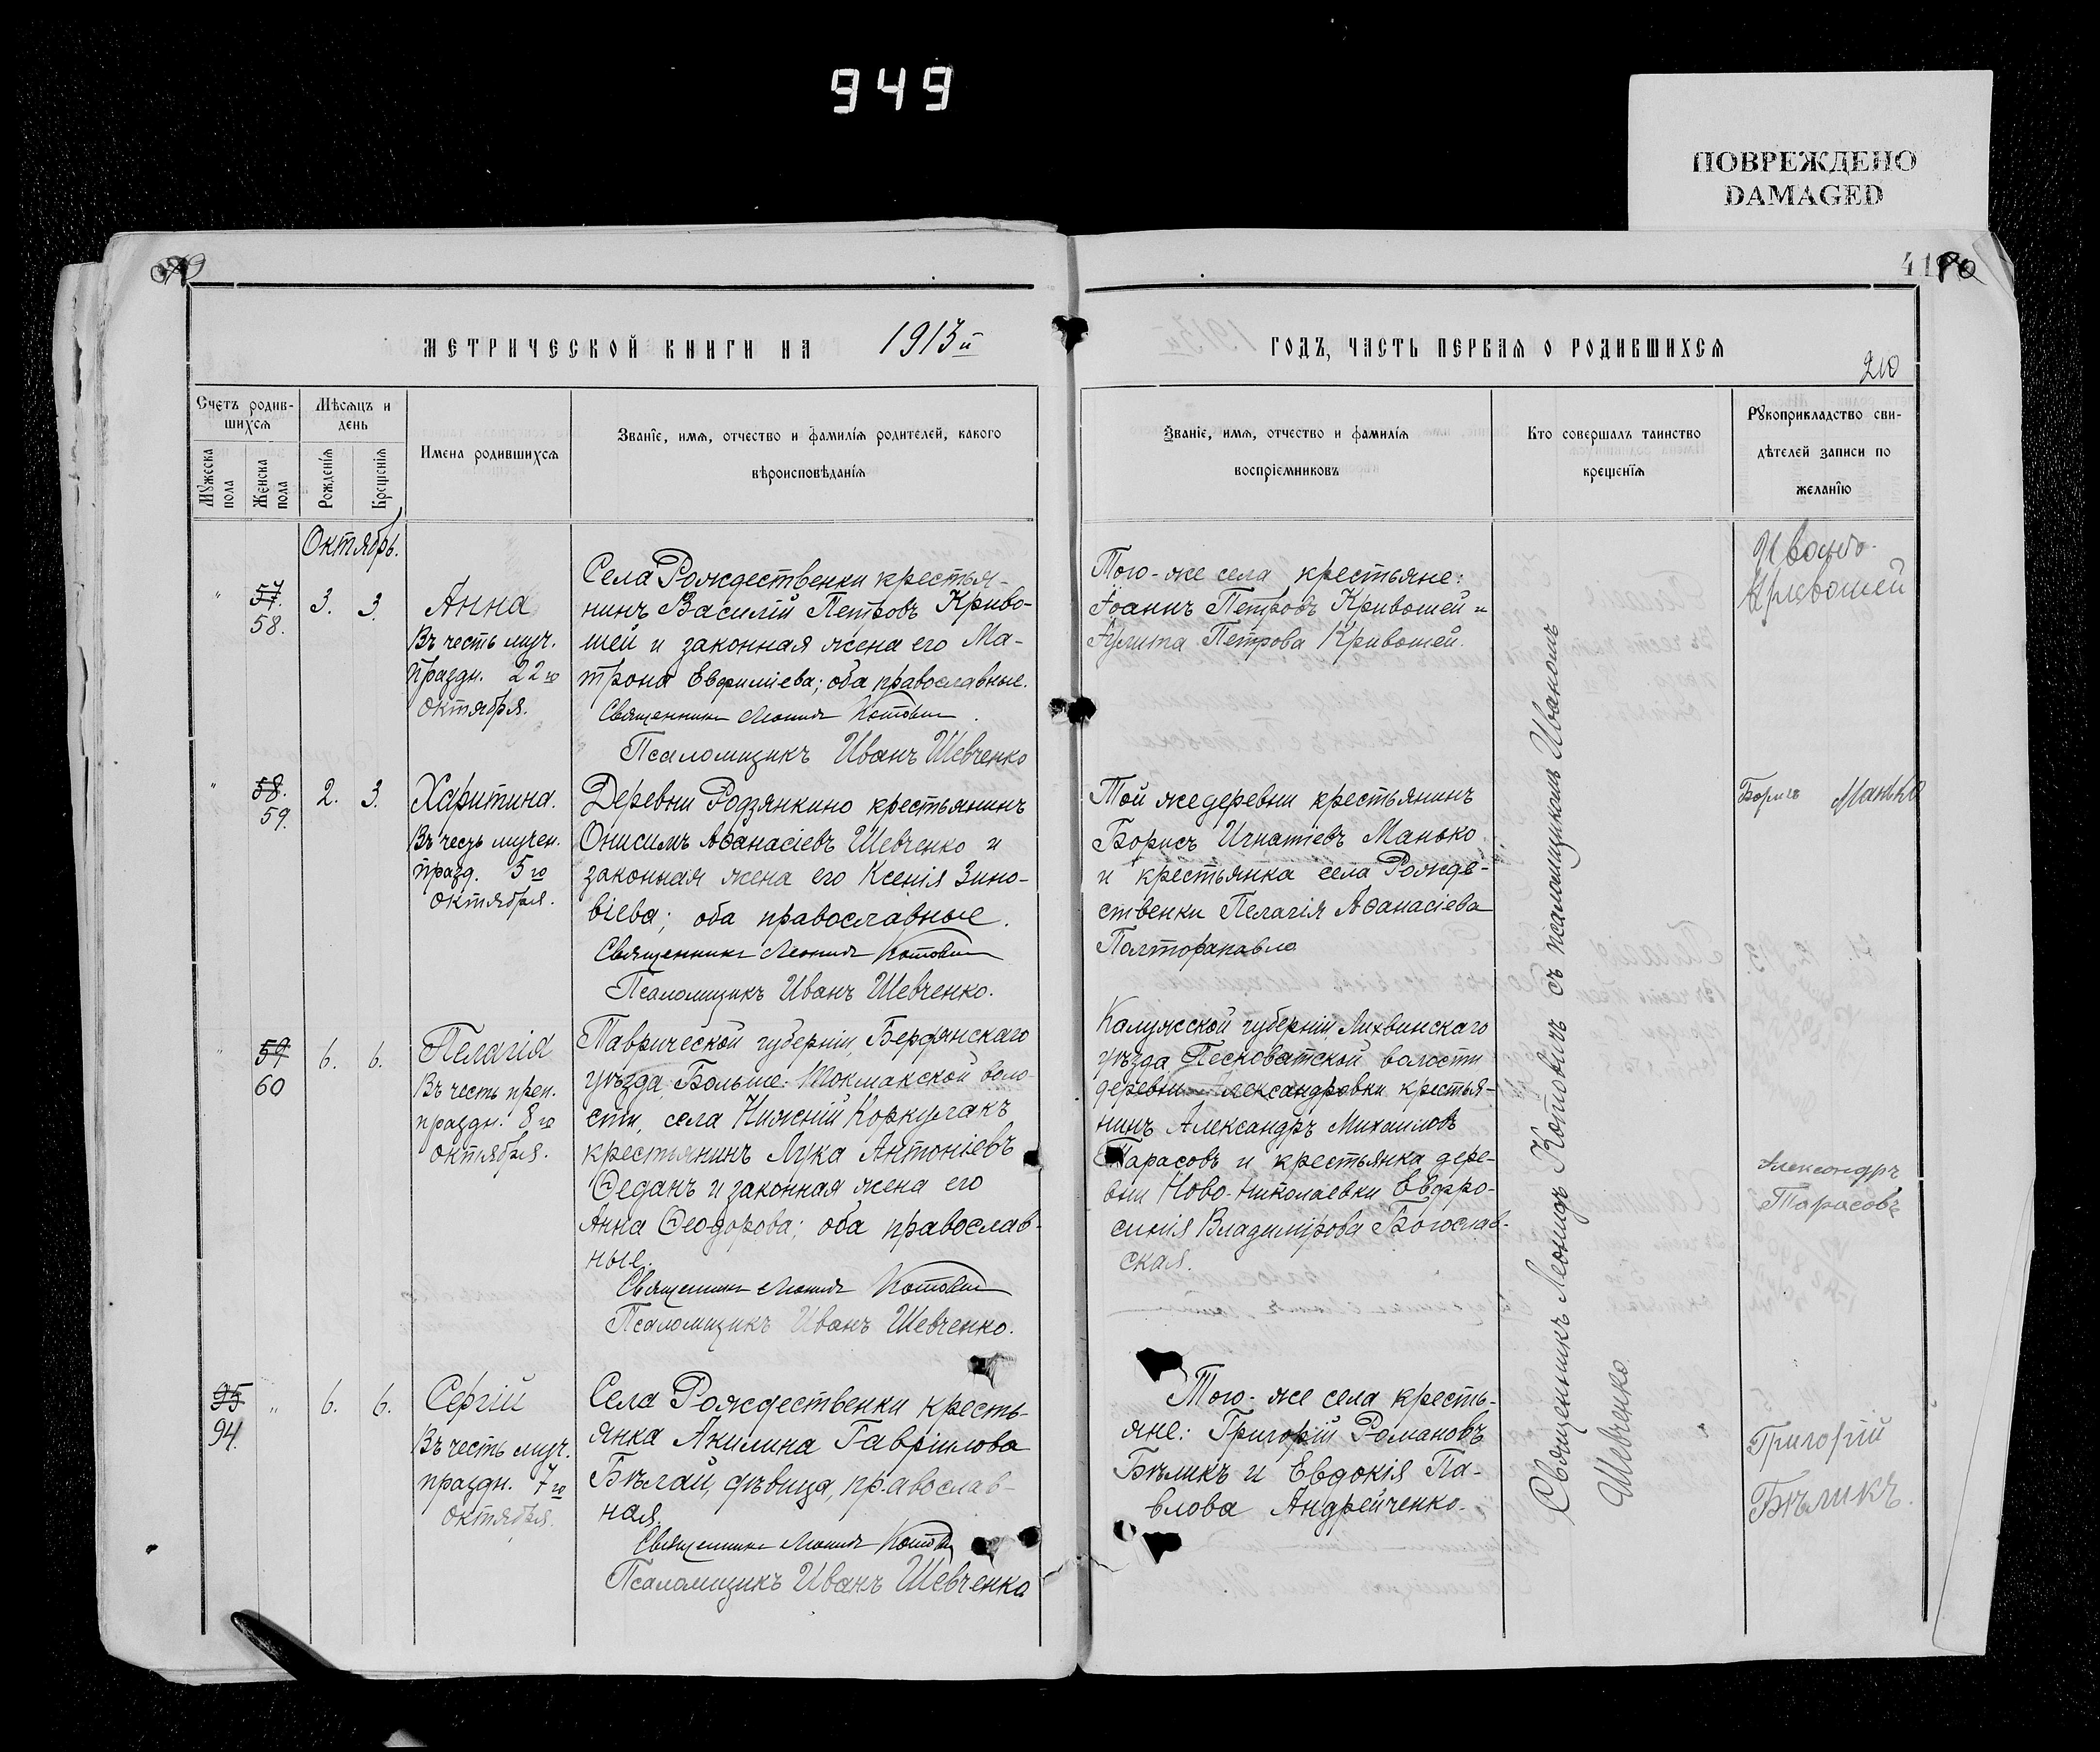 949
ПОВРЕЖДЕНО
DAMAGED
МЕТРИЧЕСКОЙ КНИГИ НА 1913й
ГОДЪ, ЧАСТЬ ПЕРВАЯ О РОДИВШИХСЯ
210
Счетъ родив-
шихся
Мѣсяцъ и
день
Мужеска
пола
Женска
пола
Рожденія
Крещенія
Имена родившихся
Званіе, имя, отчество и фамилія родителей, какого
вѣроисповѣданія
Званіе, имя, отчество и фамилія
воспріемниковъ
Кто совершалъ таинство
крещенія
Рукоприкладство сви-
дѣтелей записи по
желанію
Октябрь.
" 57. 3. 3.
58.
Анна
Въ честь муч.
праздн. 22го
октября.
Села Рождественки крестья-
нинъ Василій Петровъ Криво-
шей и законная жена его Ма-
трона Евфиміева; оба православные.
Священникъ Леонидъ Котовичъ
Псаломщикъ Иванъ Шевченко
Того-же села крестьяне:
Іоаннъ Петровъ Кривошей и
Іулита Петрова Кривошей.
Иванъ
Кривошей
" 58. 2. 3.
59.
Харитина.
Въ честь мучен.
празд. 5го
октября.
Деревни Родзянкино крестьянинъ
Онисимъ Аѳанасіевъ Шевченко и
законная жена его Ксенія Зино-
віева; оба православные.
Священникъ Леонидъ Котовичъ
Псаломщикъ Иванъ Шевченко.
Той же деревни крестьянинъ
Борисъ Игнатіевъ Манько
и крестьянка села Рожде-
ственки Пелагія Аѳанасіева
Борисъ Манько
" 59 6. 6.
60
Пелагія
Въ честь преп.
праздн. 8го
октября.
Таврической губерніи, Бердянскаго
уѣзда, Больше-Токмакской воло-
сти, села Нижній Коркулакъ
крестьянинъ Лука Антоніевъ
Ѳеданъ и законная жена его
Анна Ѳеодорова; оба православ-
ные.
Священникъ Леонидъ Котовичъ
Псаломщикъ Иванъ Шевченко.
Калужской губерніи, Лихвинскаго
уѣзда Песковатской волости
деревни Александровки крестья-
нинъ Александръ Михаиловъ
Тарасовъ и крестьянка дере-
вни Ново-Николаевки Евфро-
синія Владимірова Богослав-
ская.
Александръ
Тарасовъ
95 " 6. 6.
94.
Сергій
Въ честь муч.
праздн. 7го
октября.
Села Рождественки кресть-
янка Акилина Гавріилова
Бѣлай, дѣвица, православ-
ная.
Священникъ Леонидъ Котовичъ
Псаломщикъ Иванъ Шевченко
Того-же села кресть-
яне: Григорій Романовъ
Бѣликъ и Евдокія Па-
влова Андрейченко.
Григорій
Бѣликъ.
Священникъ Леонидъ Котовичъ съ псаломщикомъ Иваномъ
Шевченко